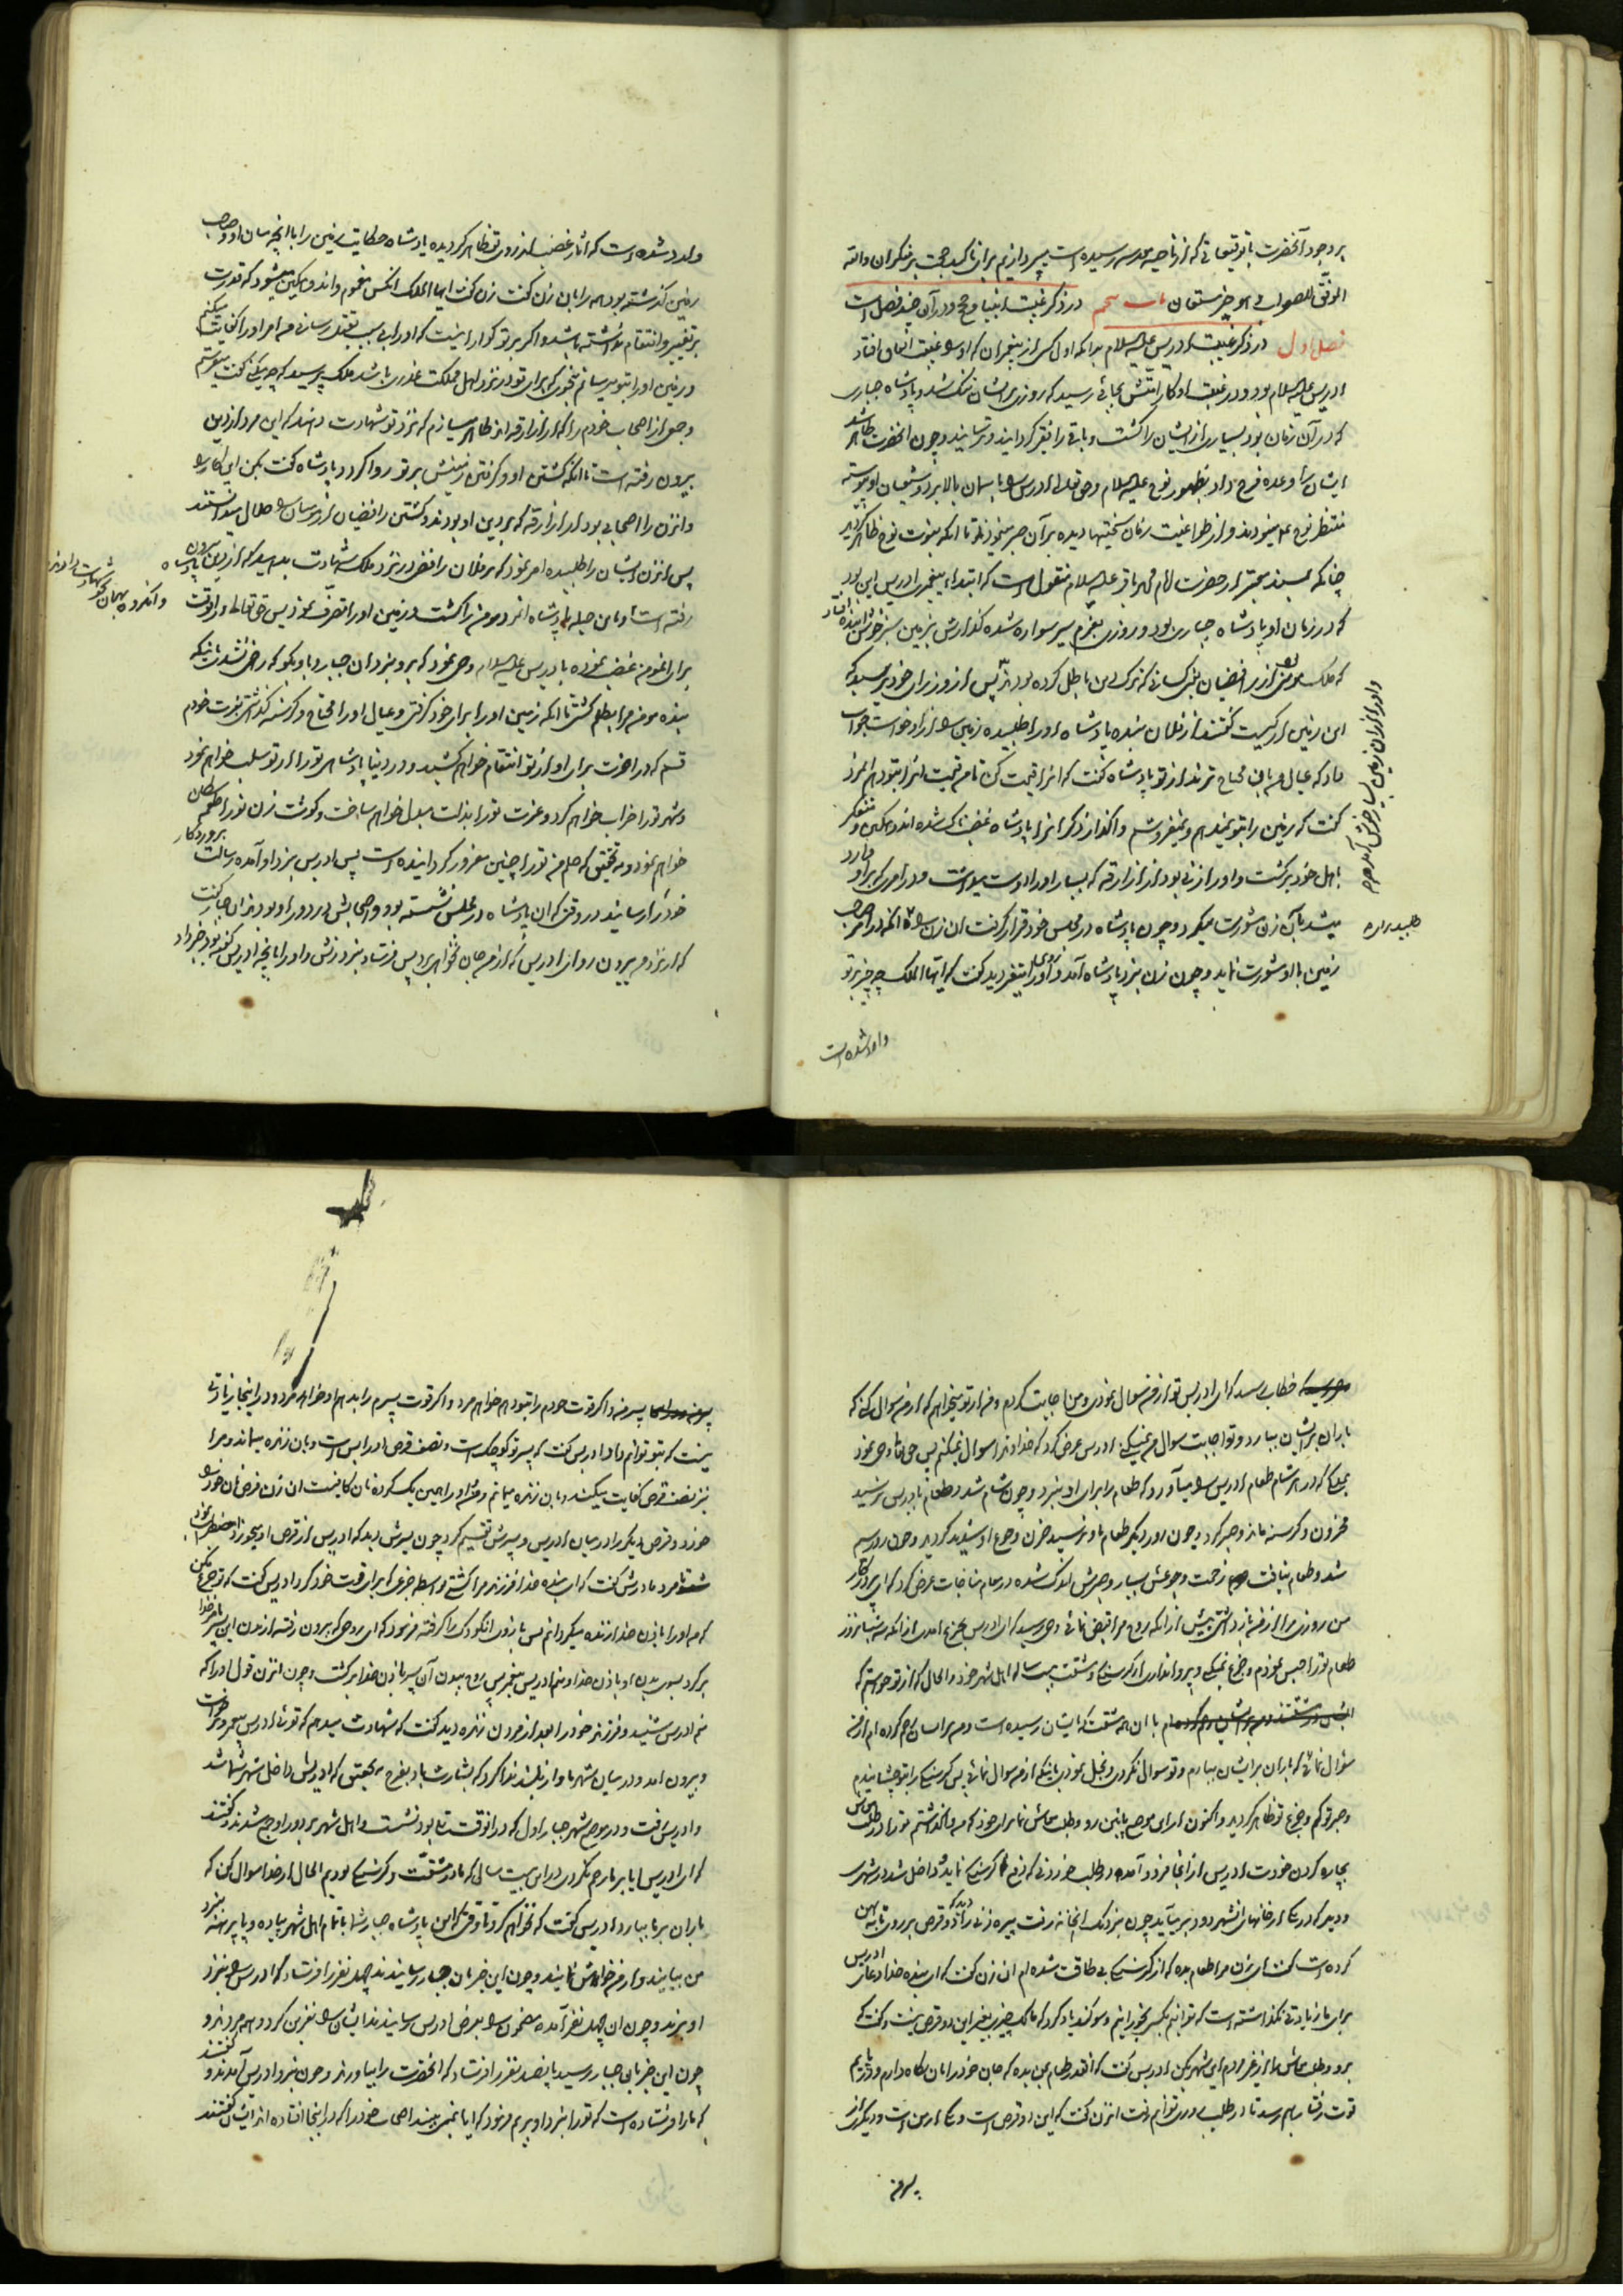 بر وجود آنحضرت با توقیعاتی که از ناحیه مقدسه رسیده است میپردازیم برای تاکید حجت بر منکران والله
الموفق للصواب و هو خیر مستعان باب پنجم در ذکر غیبت انبیا و حجج و در آن چند فصل است
فصل اول در ذکر غیبت ادریس علیه السلام بدانکه اول کسی از پیغمبران که او را غیبت اتفاق افتاد
ادریس علیه السلام بود و در غیبت او کار امتش بجائی رسید که روزی بر ایشان تنگ شد و پادشاه جباری
که در آن زمان بود بسیاری از ایشان را کشت و باقی را فقیر گردانید و ترسانید و چون آنحضرت ظاهر شد
ایشان را وعده فرج داد بظهور نوح علیه السلام و حق تعالی ادریس را باسمان بالا برد و شیعیان او پیوسته
منتظر نوح علیه میبودند و از طواغیت زمان سختیها دیده بر آن صبر مینمودند تا آنکه نبوت نوح ظاهر گردید
چنانکه بسند معتبر از حضرت امام محمد باقر علیه السلام منقول است که ابتداء پیغمبری ادریس این بود
که در زمان او پادشاه جباری بود و روزی بعزم سیر سواره شده گذارش بزمین سبز خوش آینده افتاد
که ملک مؤمنی از رافضیان یعنی کسانی که ترک دین باطل کرده بودند پس از وزرای خود پرسید که
این زمین از کیست گفتند از فلان بنده پادشاه او را طلبیده زمین را از او خواست جواب
داد که عیال من بآن محتاج ترند از تو پادشاه گفت که آنرا قیمت کن تا من قیمت آنرا بتو دهم آنمرد
گفت که زمین را بتو نمیدهم و نمیفروشم واگذار ذکر آنرا پادشاه غضبناک شده اندوهگین و متفکر
باهل خود برگشت و او را زنی بود از ازارقه که بسیار او را دوست میداشت و در امری که بر او وارد
میشد با آن زن مشورت میکرد و چون پادشاه در مجلس خود قرار گرفت آن زن را طلبید تا آنکه در امر صاحب
زمین با او مشورت نماید و چون زن بنزد پادشاه آمد و روی او را متغیر دید گفت که ایها الملک چه چیز بر تو
وارد شده است
وارد شده است که آثار غضب از روی تو ظاهر گردیده پادشاه حکایت زمین را با آنچه میان او و صاحب
زمین گذشته بود همه را بآن زن گفت زن گفت ایها الملک آنکس مغموم و اندوهگین میشود که قدرت
بر تغییر و انتقام نداشته باشد و اگر بر تو گوارا نیست که او را بی سببی بقتل رسانی من امر او را کفایت میکنم
و زمین او را بتو میرسانم بنحوی که برای تو در نزد اهل مملکت عذری باشد ملک پرسید که چه میکنی گفت میفرستم
و جمعی از اصحاب خودم را که از ازارقه اند ظاهر میسازم که نزد تو شهادت دهند که این مرد از دین
بیرون رفته است تا آنکه کشتن او و گرفتن زمینش بر تو روا گردد پادشاه گفت بکن این کار را
و آنزن را اصحابی بود از ازارقه که بر دین او بودند و کشتن رافضیان از مؤمنان را حلال میدانستند
پس آنزن ایشان را طلبیده امر نمود که بر فلان رافضی در نزد ملک شهادت بدهید که از دین پادشاه بیرون
رفته است و باین حیله پادشاه آنمرد مؤمن را کشت و زمین او را متصرف نمود پس حق تعالی در آنوقت
برای آنمؤمن غضب نموده بادریس علیه السلام وحی نمود که برو بنزد آن جبار و باو بگو که راضی نشدی باینکه
بنده مؤمن مرا بظلم کشتی تا آنکه زمین او را برای خود گرفتی و عیال او را محتاج و گرسنه گذاشتی بعزت خودم
قسم که در آخرت برای او از تو انتقام خواهم کشید و در دنیا پادشاهی تو را از تو سلب خواهم نمود
و شهر تو را خراب خواهم کرد و عزت تو را بذلت مبدل خواهم ساخت و گوشت زن تو را طعمه سگان
خواهم نمود و بتحقیق که حلم من تو را چنین مغرور گردانیده است پس ادریس بنزد او آمده رسالت پروردگار
خود را رسانید در وقتی که آن پادشاه در مجلس نشسته بود و اصحابش بر دور او بودند آن جبار گفت
که از نزد من بیرون رو ای ادریس که از من جان نخواهی برد پس فرستاد بنزد زنش و او را بآنچه ادریس گفته بود خبر داد
خطاب رسید که ای ادریس تو از من سؤال نمودی و من اجابت کردم و من از تو میخواهم که از من سؤال کنی که
باران بر ایشان ببارد و تو اجابت سؤال من نمیکنی ادریس عرض کرد که خداوندا سؤال نمیکنم پس حق تعالی وحی نمود
بملکی که در هر شام طعام ادریس را میآورد که طعام را برای او نبرد و چون شام شد و طعام بادریس نرسید
محزون و گرسنه ماند و صبر کرد و چون روز دیگر طعام باو نرسید حزن و جوع او شدید گردید و چون روز سیم
شد و طعام نیافت زحمت و جوعش بسیار و صبرش اندک شده در مقام مناجات عرض کرد که ای پروردگار
من روزی مرا از من باز داشتی پیش از آنکه روح مرا قبض نمائی وحی رسید که ای ادریس بجزع آمدی از آنکه سه شبانه روز
طعام تو را حبس نمودم و جزع نمیکنی و پروا نداری از گرسنگی و مشقت بیست ساله اهل شهر خود و الحال که از تو خواستم که
با آن همه مشقت که بایشان رسیده است و من بر ایشان رحم کرده ام از من
سؤال نمائی که باران بر ایشان ببارم و تو سؤال نکردی و بخل نمودی باینکه از من سؤال نمائی پس گرسنگی را بتو چشانیدم
و صبر تو کم و جزع تو ظاهر گردید و اکنون از این موضع پائین رو و طلب معاش نما برای خود که من واگذاشتم تو را در طلب معاش
بچاره کردن خودت ادریس از آنجا فرود آمده و طلب خوردنی که رفع گرسنگی نماید شد داخل شد در شهری
و دید که دود از خانهای آنشهر بر میآید چون بنزدیک آنخانه رفت پیره زنی را دید که دو قرص بر روی تابه پهن
کرده است گفت ای زن مرا طعام بده که از گرسنگی بی طاقت شده ام آن زن گفت که ای بنده خدا دعای ادریس
برای ما زیادتی نگذاشته است که توانیم بکسی بخورانیم و سوگند یاد کرد که مالک چیزی بغیر این دو قرص نیست و گفت که
برو و طلب معاش را از غیر مردم این شهر بکن ادریس گفت که آنقدر طعام بمن بده که جان خود را بآن نگاه دارم و در پایم
قوت رفتار بهم رسد تا در طلب روزی توانم رفت آنزن گفت که این دو قرص است و یکی از من است و دیگری از
پسر من
پسر من و اگر قوت خودم را بتو دهم خواهم مرد و اگر قوت پسرم را بدهم او خواهد مرد و در اینجا زیادتی
نیست که بتو توانم داد ادریس گفت که پسر تو کوچک است و نصف قرص او را بس است و بآن زنده میماند و مرا
نیز نصف قرص کفایت میکند و بآن زنده میمانم آن زن قرص نان خود را
خورد و قرص دیگر را در میان ادریس و پسرش تقسیم کرد چون پسرش دید که ادریس از قرص او میخورد اضطراب نمود
تا مرد مادرش گفت که ای بنده خدا فرزند مرا کشتی بواسطه جزعی که برای قوت خود کرد ادریس گفت که تو جزع مکن
که من او را باذن خدا زنده میگردانم پس بازوی آن کودک را گرفته فرمود که ای روحی که بیرون رفته از بدن این پسر بامر خدا
برگرد بسوی بدن او باذن خدا و منم ادریس پیغمبر پس روح ببدن آن پسر باذن خدا برگشت و چون آنزن قول او را که
منم ادریس شنید و فرزند خود را بعد از مردن زنده دید گفت که شهادت میدهم که توئی ادریس پیغمبر و برخواست
و بیرون آمد و در میان شهر باواز بلند ندا کرد که بشارت باد بفرج بتحقیق که ادریس داخل شهر شما شد
و ادریس رفت و در موضع شهر جبار اول که در آنوقت تلی بود نشست و اهل شهر بر دور او جمع شدند و گفتند
که ای ادریس آیا بر ما رحم نکردی در این بیست سالی که ما در مشقت و گرسنگی بودیم الحال از خدا سؤال کن که
باران بر ما ببارد ادریس گفت که نخواهم کرد تا وقتی که این پادشاه جبار شما با تمام اهل شهر پیاده و پا برهنه بنزد
من بیایند و از من خواهش نمایند و چون این خبر بآن جبار رسانیدند چهل نفر را فرستاد که ادریس را بنزد
او برند و چون آن چهل نفر آمده سخن را بعرض ادریس رسانیدند ایشان را نفرین کرد و همه مردند و
چون این خبر بآن جبار رسید پانصد نفر را فرستاد که آنحضرت را بیاورند و چون بنزد ادریس آمدند و گفتند
که ما را فرستاده است که تو را بنزد او بریم فرمود که آیا نمی بینید اصحاب خود را که در اینجا افتاده اند ایشان گفتند